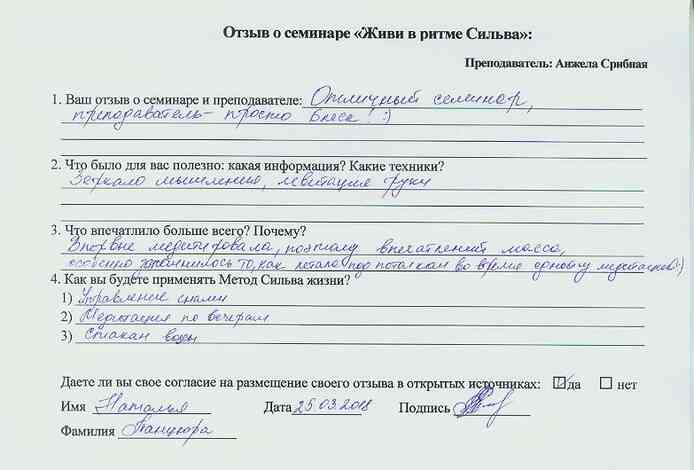 Отзыв о семинаре «Живи в ритме Сильва»:
Преподаватель: Анжела Срибная
1. Ваш отзыв о семинаре и преподавателе: Отличный семинар,
преподаватель - просто блеск! :)
2. Что было для вас полезно: какая информация? Какие техники?
Зеркало мышления, левитация руки
3. Что впечатлило больше всего? Почему?
Впервые медитировала, поэтому впечатлений масса,
особенно запомнилось то, как летала под потолком во время одной из медитаций :)
4. Как вы будете применять Метод Сильва жизни?
1) Управление снами
2) Медитация по вечерам
3) Стакан воды
Даете ли вы свое согласие на размещение своего отзыва в открытых источниках: да нет
Имя Наталья Дата 25.03.2018 Подпись
Фамилия